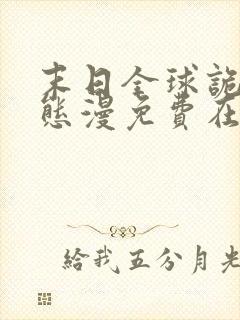 末日全球詭
態漫免費在
給我五分月光